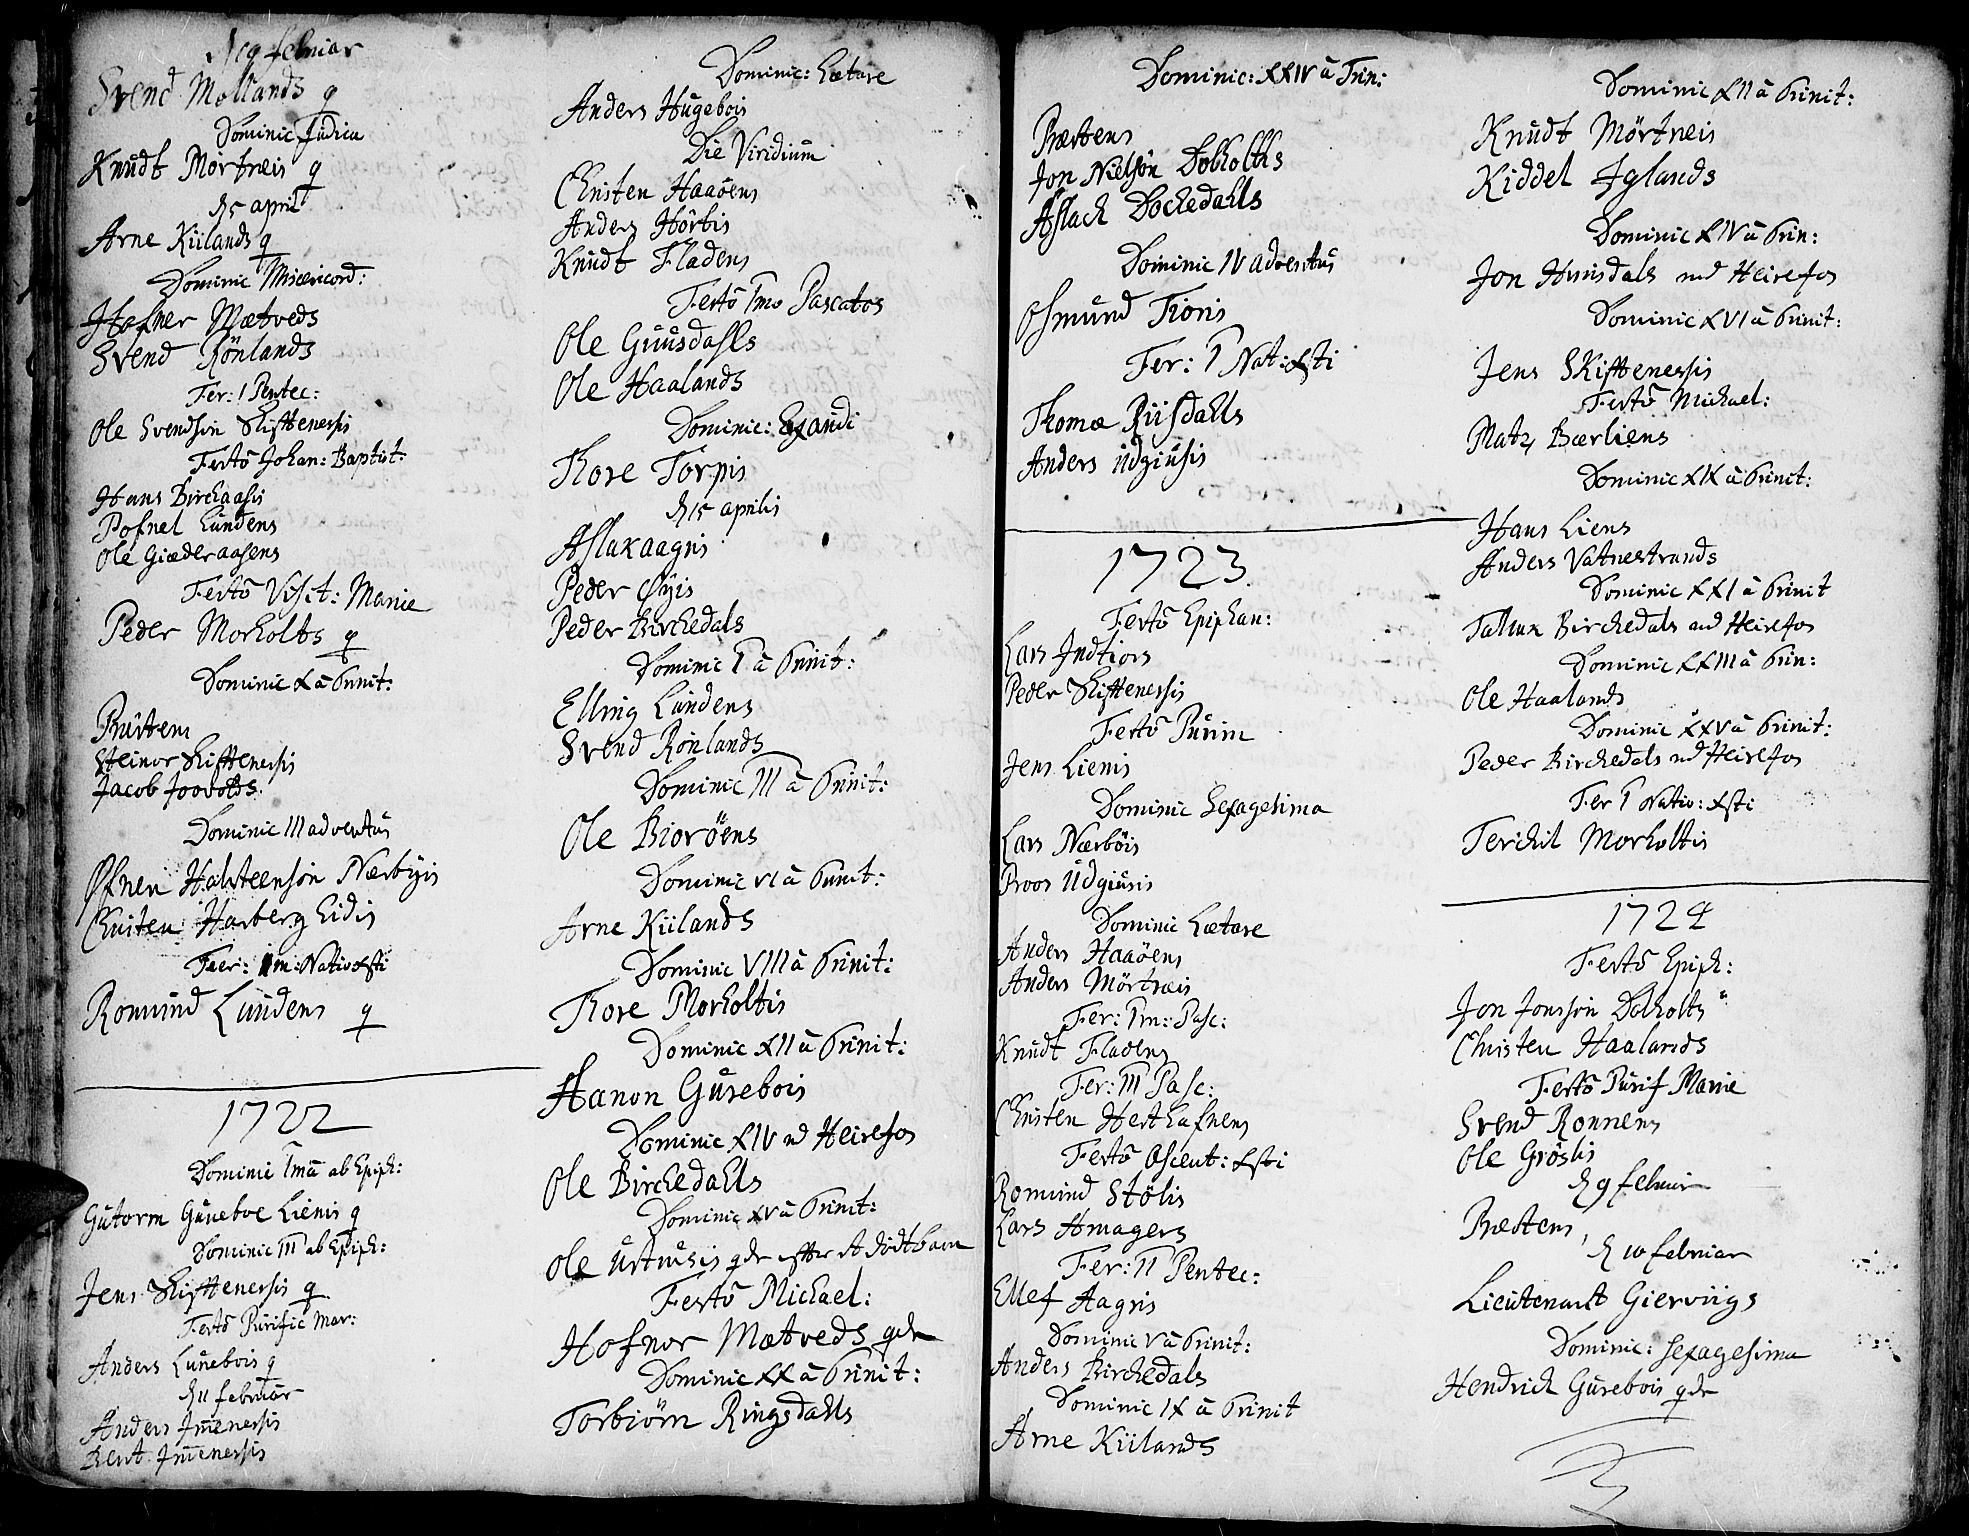 d 19 februar
Svend Mollands q
Dominic Judica
Knudt Mörtneis q
d 5 april
Arne Kiilands q
Dominic Misericord:
Hofner Mætveds
Svend Rönlands
Fer: 1 Pentec:
Ole Svendsön Skiftenessis
Festo Johan: Baptist:
Hans Birchaasis
Pofnel Lundens
Ole Giæderaasens
Festo Visit: Mariæ
Peder Morholts q
Dominic X à Trinit:
Præstens
Steinor Skiftenessis
Jacob Joovolds
Dominic III adventus
Ofnen Halsteensön Nærbyis
Christen Harberg Eidis
Feer: m: Nativ Xsti
Romund Lundens q
1722
Dominic 1mâ ab Epiph:
Gutorm Guneboe Lienis q
Dominic III ab Epiph:
Jens Skiftenessis q
Festo Purific Mar:
Anders Lunebois q
d 11 februar
Anders Imenessis
Bent Imenessis
Dominic: Lætare
Anders Hugebois
Die Viridium
Christen Haaöens
Anders Hörbis
Knudt Fladens
Festo 1mo Pascatos
Ole Guusdahls
Ole Haalands
Dominic: Exaudi
Thore Torpis
d 15 aprilis
Aslak aagris
Peder Øyis
Peder Birchedals
Dominic I à Trinit:
Elling Lundens
Svend Rönlands
Dominic III à Trinit:
Ole Bioröens
Dominic VI à Trinit:
Arne Kiilands
Dominic VIII à Trinit:
Thore Morholtis
Dominic XII à Trinit:
Hanon Gurebois
Dominic XIV ved Heirefos
Ole Birchedahls
Dominic XV à Trinit:
Ole Urtvusis qde efter et dödt barn
Festo Michael:
Hofnor Mætveds qde
Dominic XX à Trinit:
Torbiörn Ringsdahls
Dominic: XXIV à Trin:
Præstens
Jon Nielsön Dobholtts
Aslach Dochedahls
Dominic IV adventus
Osmund Tioris
Fer: I Nat: Xsti
Thomæ Riisdahls
Anders Udgiusis
1723
Festo Epiphan:
Lars Indtiors
Peder Skiftenessis
Festo Purim
Jens Lienis
Dominic Sexagesima
Lars Nærböis
Broor Udgiusis
Dominic Lætare
Anders Haaöens
Anders Mörtneis
Fer: 1m: Pasc:
Knudt Fladens
Fer: III Pasc:
Christen Herthafnens
Festo Ascent: Xsti
Romund Stölis
Lars Hmagers
Fer: II Pentec:
Ellef Aagris
Dominic V à Trinit:
Anders Birchedals
Dominic IX à Trinit
Arne Kiilands
Dominic XII à Trinit:
Knudt Mörtneis
Kiddel Iglands
Dominic XIV à Trin:
Jon Hunsdals ved Heirefos
Dominic XVI à Trinit:
Jens Skiftenessis
Festo Michael:
Matz Bærliens
Dominic XIX à Trinit:
Hans Liens
Anders Vatnestrands
Dominic XXI à Trinit
Tallax Birchedals ved Heirefos
Dominic XXIII à Trin:
Ole Haalands
Dominic XXV à Trinit:
Peder Birchedals ved Heirefos
Fer I Nativ: Xsti
Terchil Morholtis
1724
Festo Epiph:
Jon Jonssön Dobholts
Christen Haalands
Festo Purif Mariæ
Svend Ronnens
Ole Gröslis
d 9 februar
Præstens,
d 10 februar
Lieutenant Gierviigs
Dominic: Sexagesima
Hendrich Gurebois qde